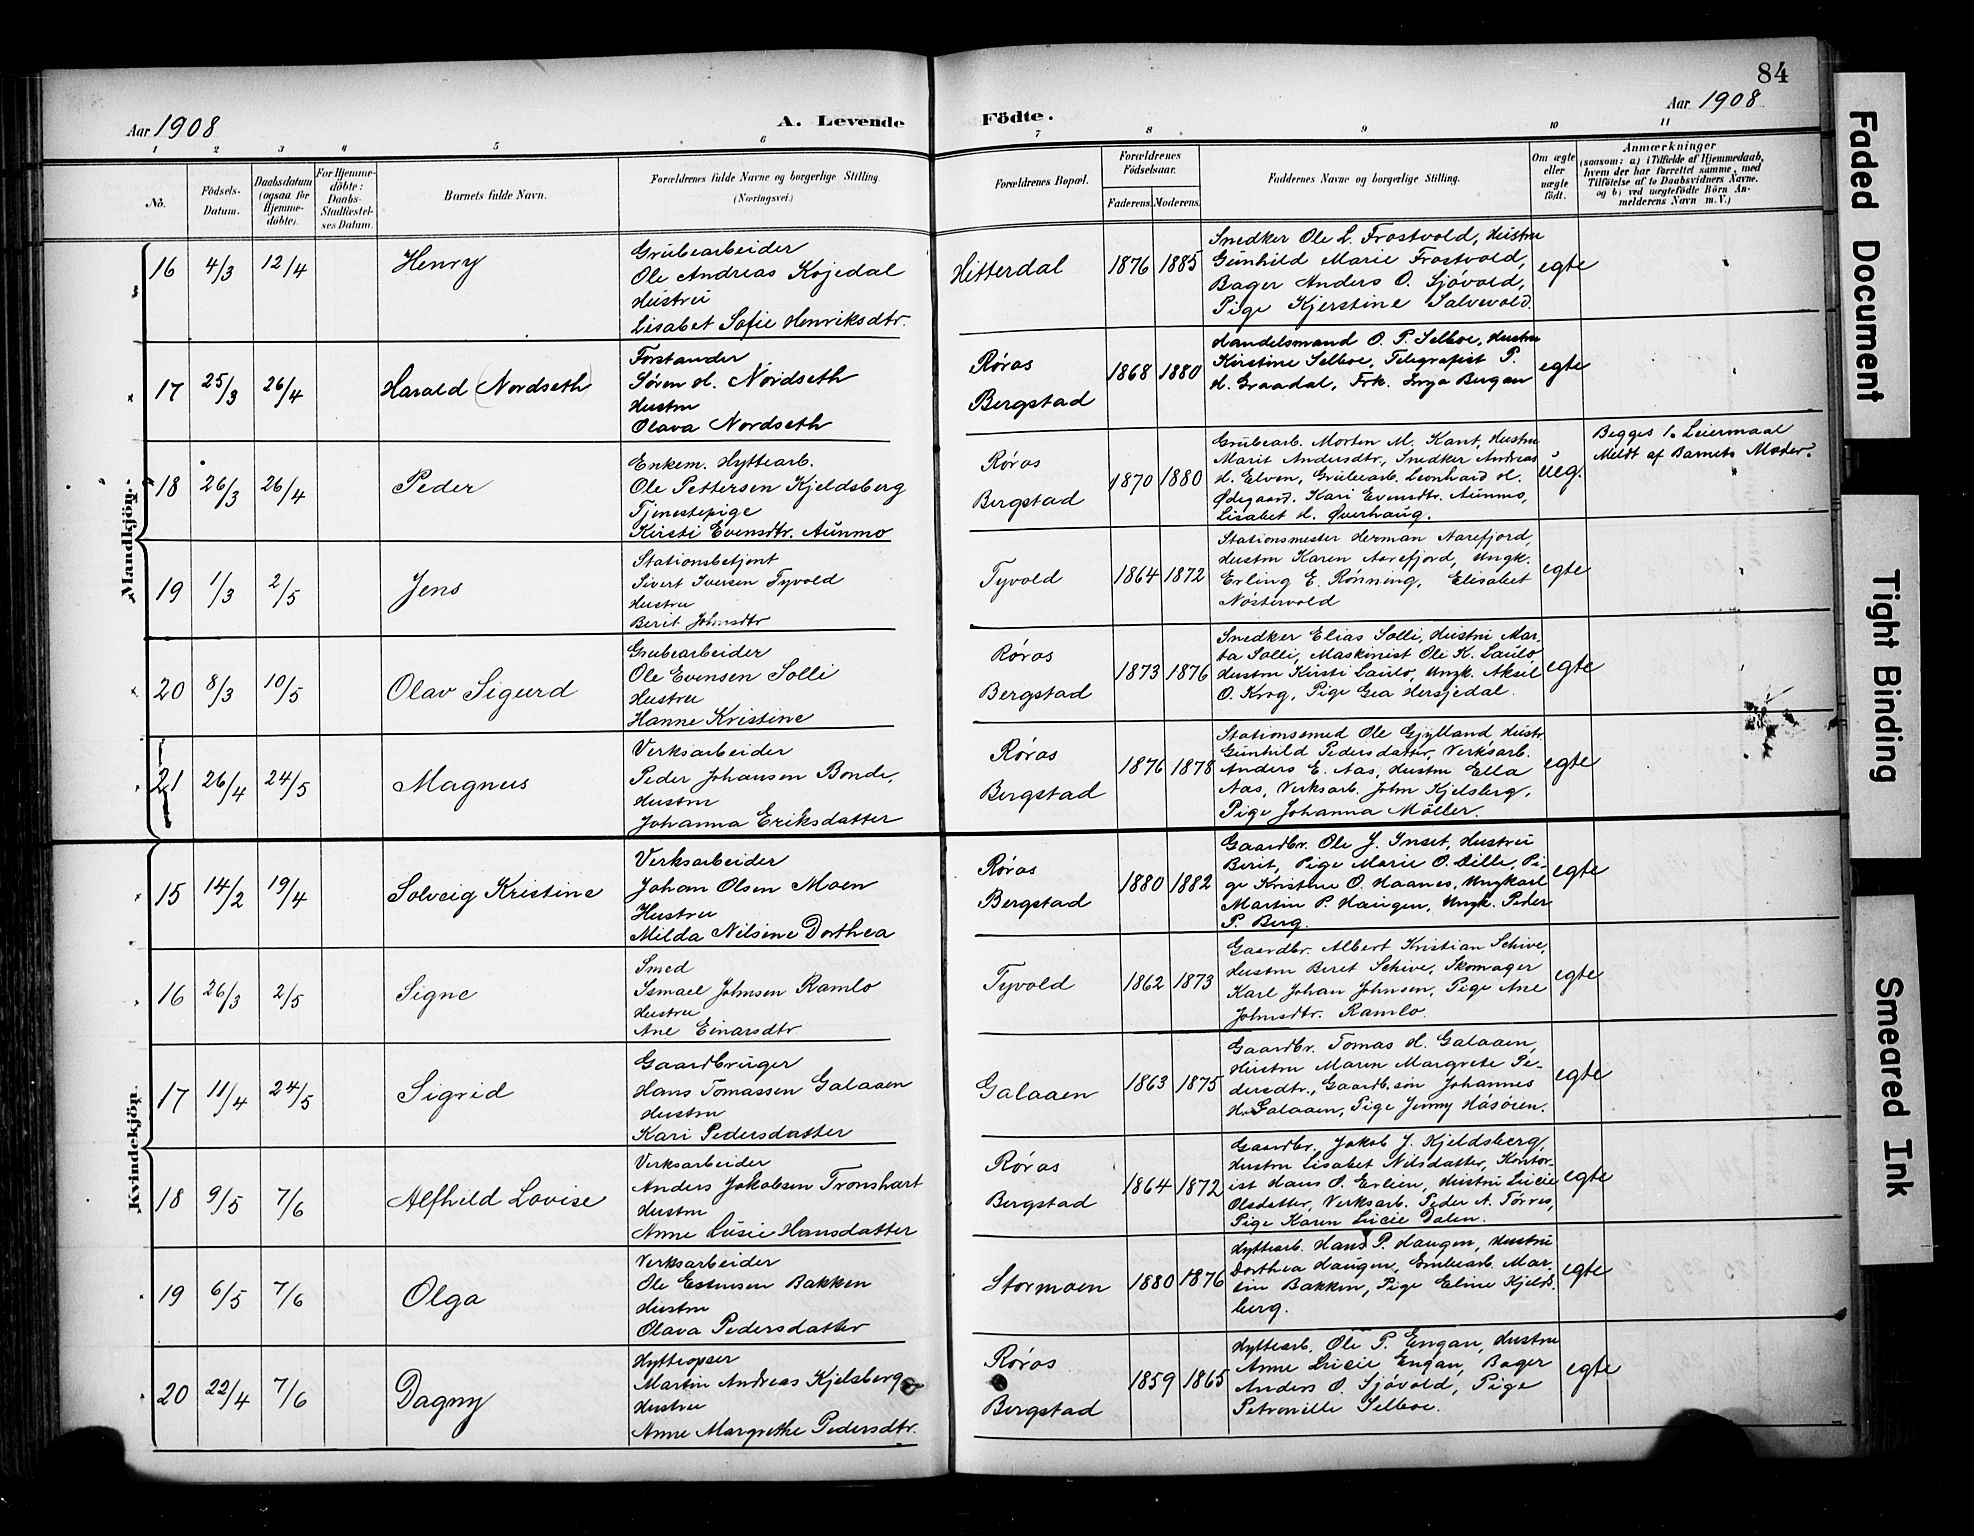 84
Aar 1908
A. Levende
Födte.
Aar 1908
1 2 3 4 5 6 7 8 9 10 11
No.
Födsels-
Datum.
Daabsdatum
(ogsaa for
Hjemme-
döbte).
For Hjemme-
döbte:
Daabs-
Stadfæstel-
ses Datum.
Barnets fulde Navn.
Forældrenes fulde Navne og borgerlige Stilling
(Næringsvei.)
Forældrenes Bopæl.
Forældrenes
Födselsaar.
Faderens. Moderens.
Faddernes Navne og borgerlige Stilling.
Om ægte
eller
uægte
födt.
Anmærkninger
(saasom: a) i Tilfælde af Hjemmedaab,
hvem der har forrettet samme, med
Tilföielse af to Daabsvidners Navne.
og b) ved uægtefödte Börn An-
melderens Navn m.V.)
Mandkjön.
16 4/3 12/4 Henry
Grubearbeider
Ole Andreas Kojedal
Hustru
Lisabet Sofie Henriksdtr.
Hitterdal
1876 1885
Snedker Ole L. Frostvold, Hustru
Gunhild Marie Frostvold,
Bager Anders O. Sjövold,
Pige Kjerstine Salvevold.
egte
17 25/3 26/4 Harald (Nordseth)
Forstander
Søren H. Nordseth
Hustru
Olava Nordseth
Røros
Bergstad
1868 1880
Handelsmand O. P. Selboe, Hustru
Kirstine Selboe, Telegrafist P.
H. Graadal, Frk. Inga Bergan
egte
18 26/3 26/4 Peder
Enkem. Hyttearb.
Ole Pettersen Kjeldsberg
Tjenestepige
Kirsti Evensdtr. Aunmo
Røros
Bergstad
1870 1880
Grubearb. Morten M. Kant, Hustru
Marit Andersdtr., Snedker Andreas
H. Elven, Grubearb. Leonhard H.
Ødegaard. Kari Evensdtr. Aunmo,
Lisabet H. Øverhaug.
ueg.
Begges 1. Leiermaal
Meldt af Barnets Moder.
19 1/3 2/5 Jens
Stationsbetjent
Sivert Iversen Tyvold
Hustru
Berit Johnsdtr
Tyvold
1864 1872
Stationsmester Herman Aarefjord,
Hustru Karen Aarefjord, Ungk.
Erling E. Rønning, Elisabet
Nöstervold
egte
20 8/3 10/5 Olav Sigurd
Grubearbeider
Ole Evensen Solli
Hustru
Hanne Kristine
Røros
Bergstad
1873 1876
Snedker Elias Solli, Hustru Mar-
ta Solli, Maskinist Ole K. Laulo
Hustru Kirsti Laulo, Ungk. Aksel
O. Krog, Pige Gea Hersjedal.
egte
21 26/4 24/5 Magnus
Verksarbeider
Peder Johansen Bonde,
Hustru
Johanna Eriksdatter
Røros
Bergstad
1876 1878
Stationsmed Ole Gjylland Hustr.
Gunhild Pedersdatter, Verksarb.
Anders E. Aas, Hustru Ella
Aas, Verksarb. John Kjelsberg,
Pige Johanna Möller.
egte
Kvindekjön.
15 14/2 19/4 Solveig Kristine
Verksarbeider
Johan Olsen Moen
Hustru
Milda Nilsine Dorthea
Røros
Bergstad
1880 1882
Gaardbr. Ole J. Inset, Hustru
Berit, Pige Marie O. Dille, Pi-
ge Kristine O. Haanes, Ungkarl
Martin P. Haugen, Ungk. Peder
P. Berg.
egte
16 26/3 2/5 Signe
Smed
Ismael Johnsen Ramlo
Hustru
Ane Einarsdtr.
Tyvold
1862 1873
Gaardbr. Albert Kristian Schive,
Hustru Beret Schive, Skomager
Karl Johan Johnsen, Pige Ane
Johnsdtr. Ramlo.
egte
17 11/4 24/5 Sigrid
Gaardbruger
Hans Tomassen Galaaen
Hustru
Kari Pedersdatter
Galaaen
1863 1875
Gaardbr. Tomas H. Galaaen,
Hustru Maren Margrete Pe-
dersdtr., Gaardb.sön Johannes
H. Galaaen, Pige Jenny Håsöien.
egte
18 9/5 7/6 Alfhild Lovise
Verksarbeider
Anders Jakobsen Tronshart
Hustru
Anne Lusie Hansdatter
Røros
Bergstad
1864 1872
Gaardbr. Jakob J. Kjeldsberg,
Hustru Lisabet Nilsdatter, Kontor-
ist Hans O. Erlien, Hustru Lucie
Olsdatter, Verksarb. Peder A. Törres,
Pige Karen Lucie Dalen.
egte
19 6/5 7/6 Olga
Verksarbeider
Ole Estensen Bakken
Hustru
Olava Pedersdatter
Stormoen
1880 1876
Hyttearb. Hans P. Haugen, Hustru
Dorthea Haugen, Grubearb. Mar-
tin Bakken, Pige Eline Kjelds-
berg.
egte
20 22/4 7/6 Dagny
Hytteopser
Martin Andreas Kjelsberg
Hustru
Anne Margrethe Pedersdtr.
Røros
Bergstad
1859 1865
Hyttearb. Ole P. Engan, Hustru
Anne Lucie Engan, Bager
Anders O. Sjövold, Pige
Petronille Selboe.
egte
Faded Document
Tight Binding
Smeared Ink